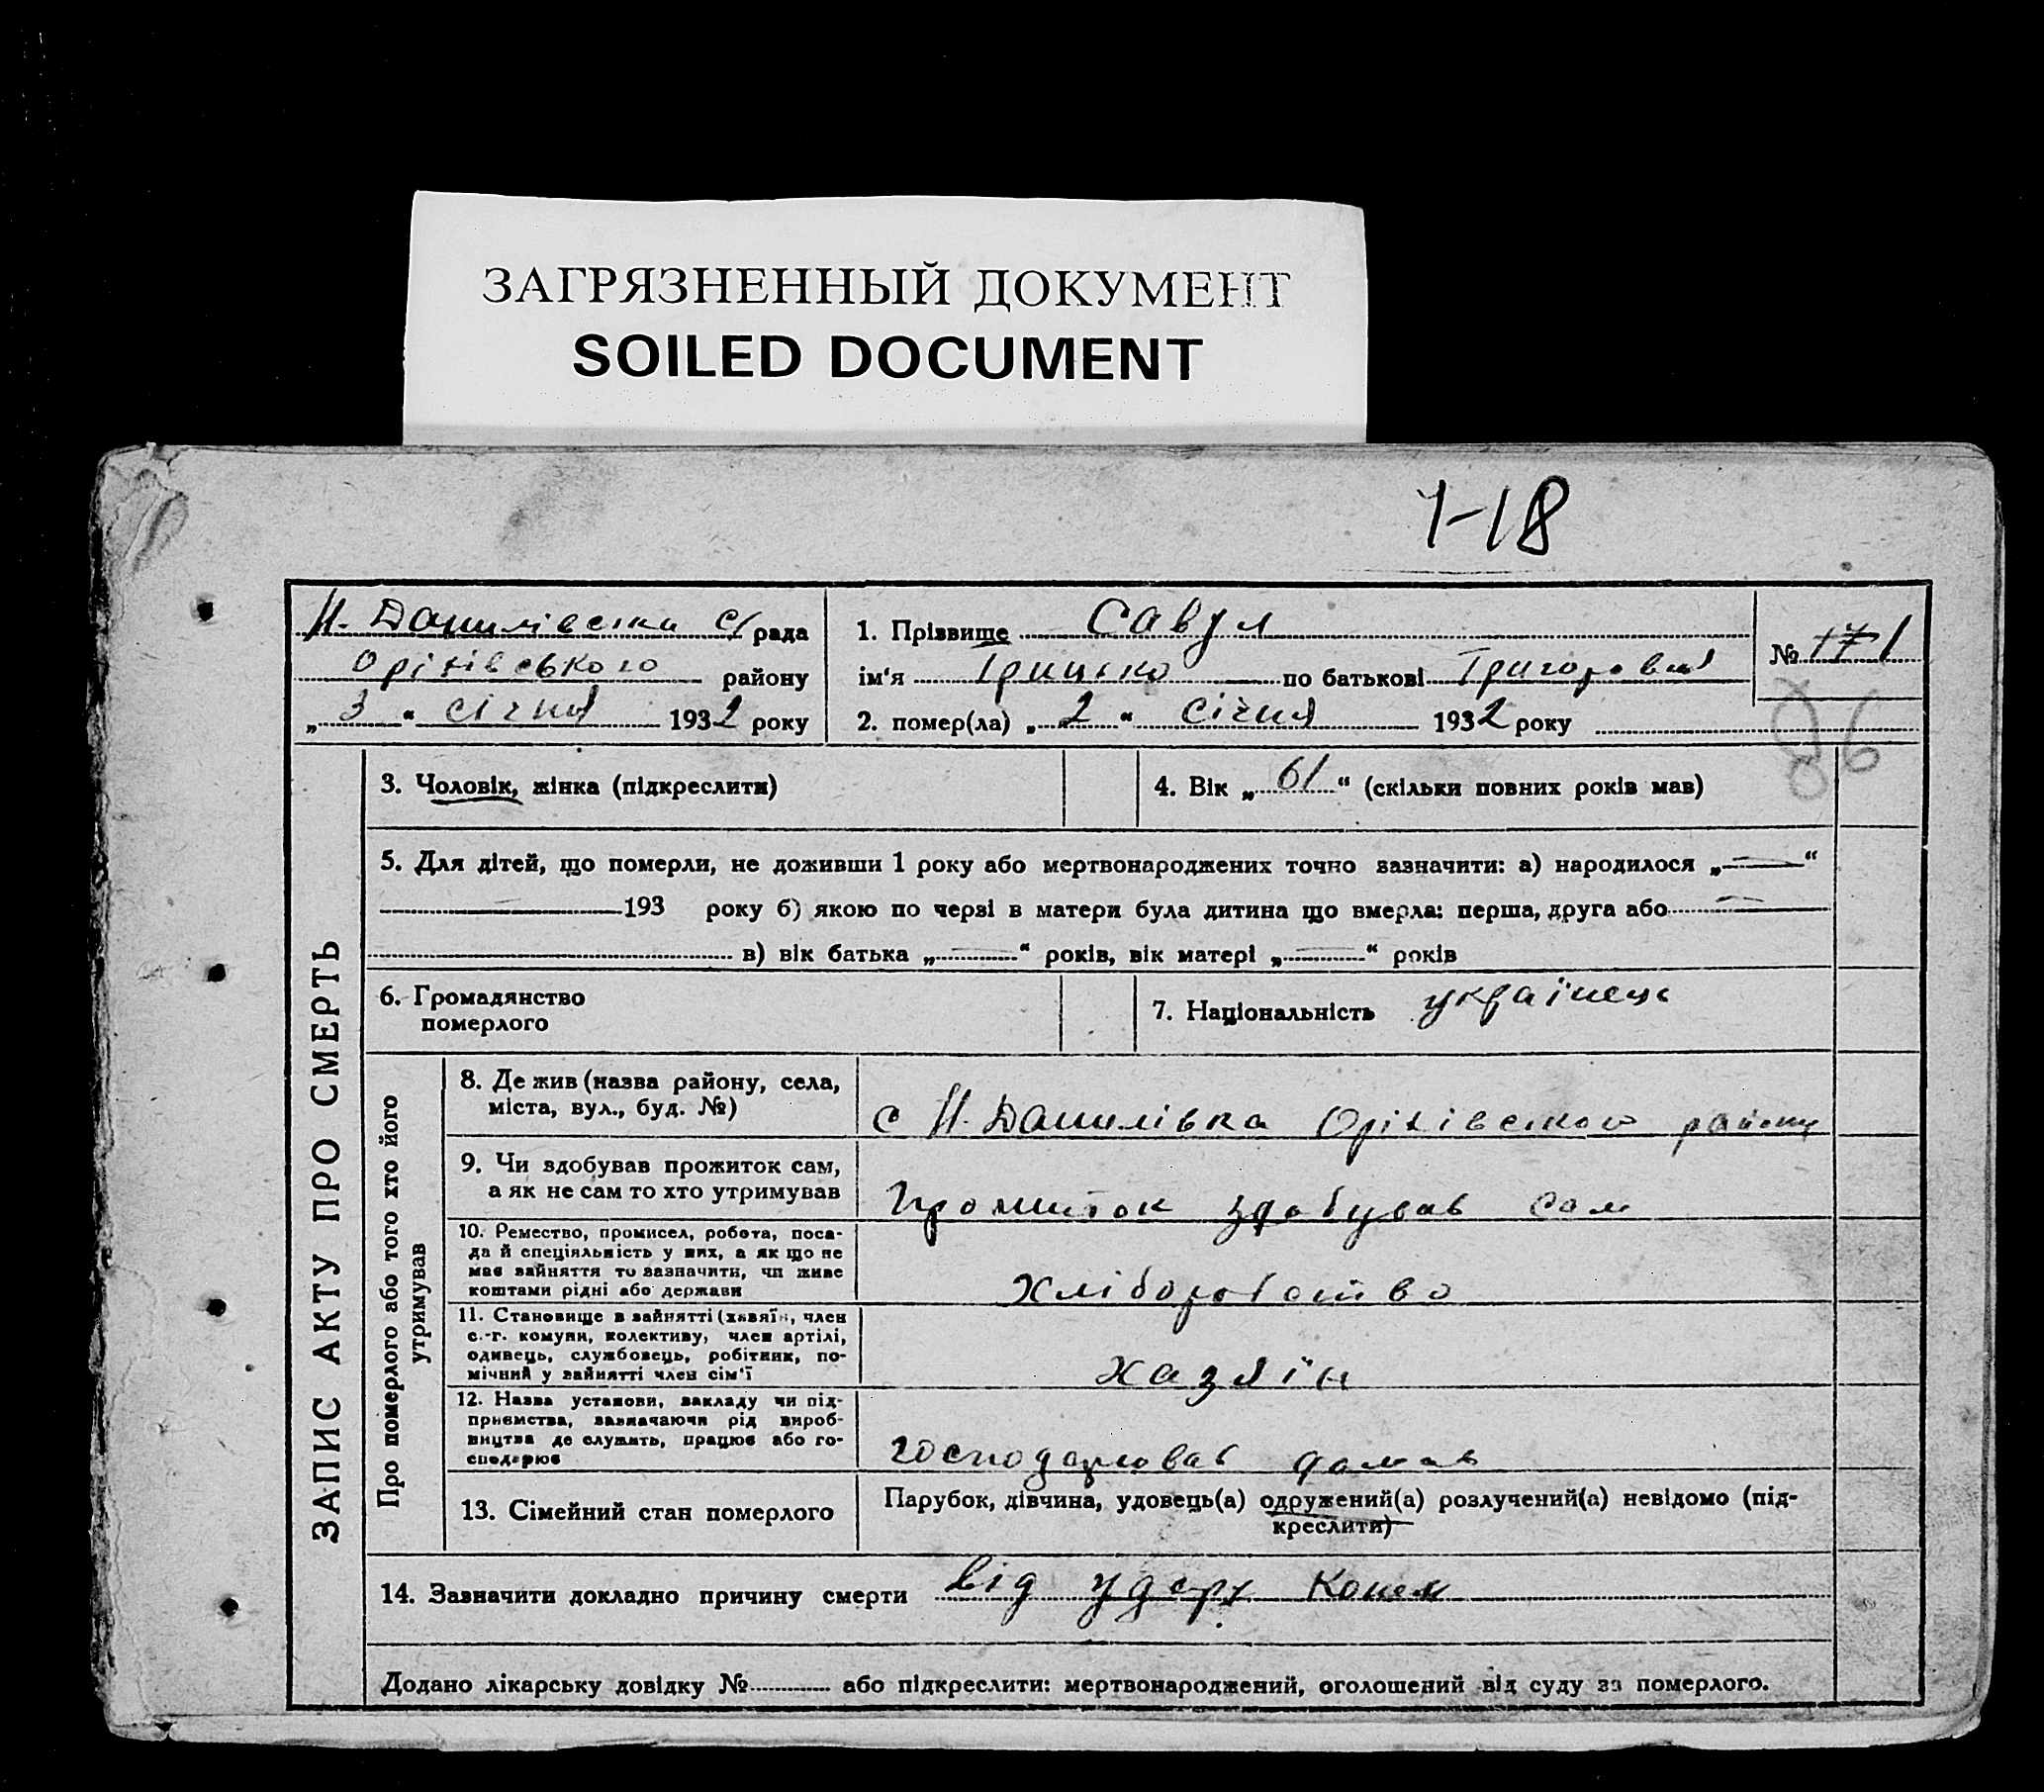 ЗАГРЯЗНЕННЫЙ ДОКУМЕНТ
SOILED DOCUMENT
1-18
Н. Данилівська с/рада
Оріхівського району
„3“ січня 1932 року
1. Прізвище Савул
ім'я Грицько по батькові Григоров
2. помер(ла) „2“ січня 1932 року
№ 17 1
86
ЗАПИС АКТУ ПРО СМЕРТЬ
3. Чоловік, жінка (підкреслити)
4. Вік „61“ (скільки повних років мав)
5. Для дітей, що померли, не доживши 1 року або мертвонароджених точно зазначити: а) народилося „—“
193 року б) якою по черзі в матери була дитина що вмерла: перша, друга або
в) вік батька „—“ років, вік матері „—“ років
6. Громадянство
померлого
7. Національність українець
Про померлого або того хто його
утримував
8. Де жив (назва району, села,
міста, вул., буд. №)
с Н. Данилівка Оріхівського району
9. Чи здобував прожиток сам,
а як не сам то хто утримував
Прожиток здобував сам
10. Ремество, промисел, робота, поса-
да й спеціяльність у них, а як що не
має зайняття то зазначити, чи живе
коштами рідні або держави
Хліборобство
11. Становище в зайнятті (хазяїн, член
с.-г. комуни, колективу, член артілі,
одинець, службовець, робітник, по-
мічний у зайнятті член сім'ї
хазяїн
12. Назва установи, закладу чи під-
приємства, зазначаючи рід вироб-
ництва де служить, працює або го-
сподарює
господарював дома
13. Сімейний стан померлого
Парубок, дівчина, удовець(а) одружений(а) розлучений(а) невідомо (під-
креслити)
14. Зазначити докладно причину смерти від удару конем
Додано лікарську довідку № або підкреслити: мертвонароджений, оголошений від суду за померлого.